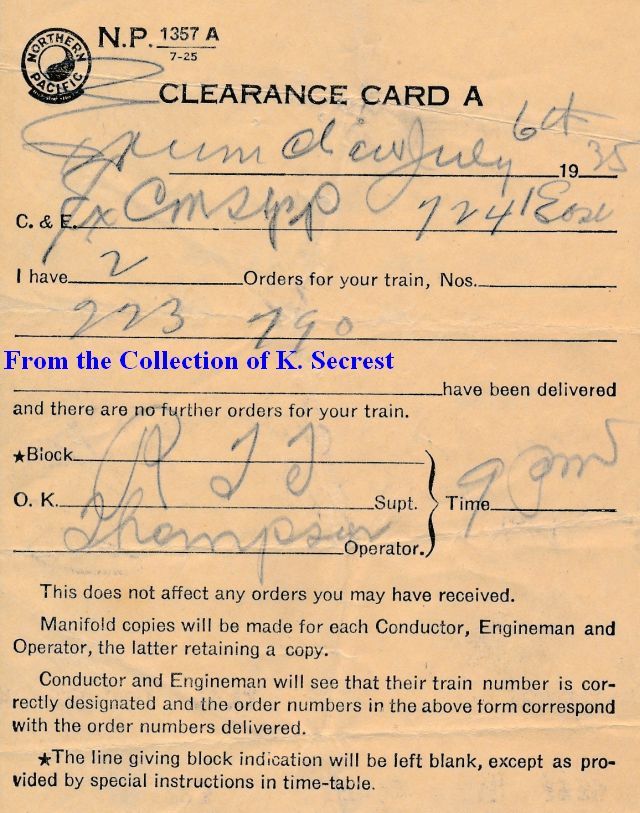 NORTHERN PACIFIC
N.P. 1357 A
7-25
CLEARANCE CARD A
July 6th 1935
C. & E. Ex CMStPP 7241 East
I have 2 Orders for your train, Nos.
223 290
From the Collection of K. Secrest
have been delivered
and there are no further orders for your train.
★Block
O. K. Supt. Time 9 pm
Thompson Operator.
This does not affect any orders you may have received.
Manifold copies will be made for each Conductor, Engineman and
Operator, the latter retaining a copy.
Conductor and Engineman will see that their train number is cor-
rectly designated and the order numbers in the above form correspond
with the order numbers delivered.
★The line giving block indication will be left blank, except as pro-
vided by special instructions in time-table.